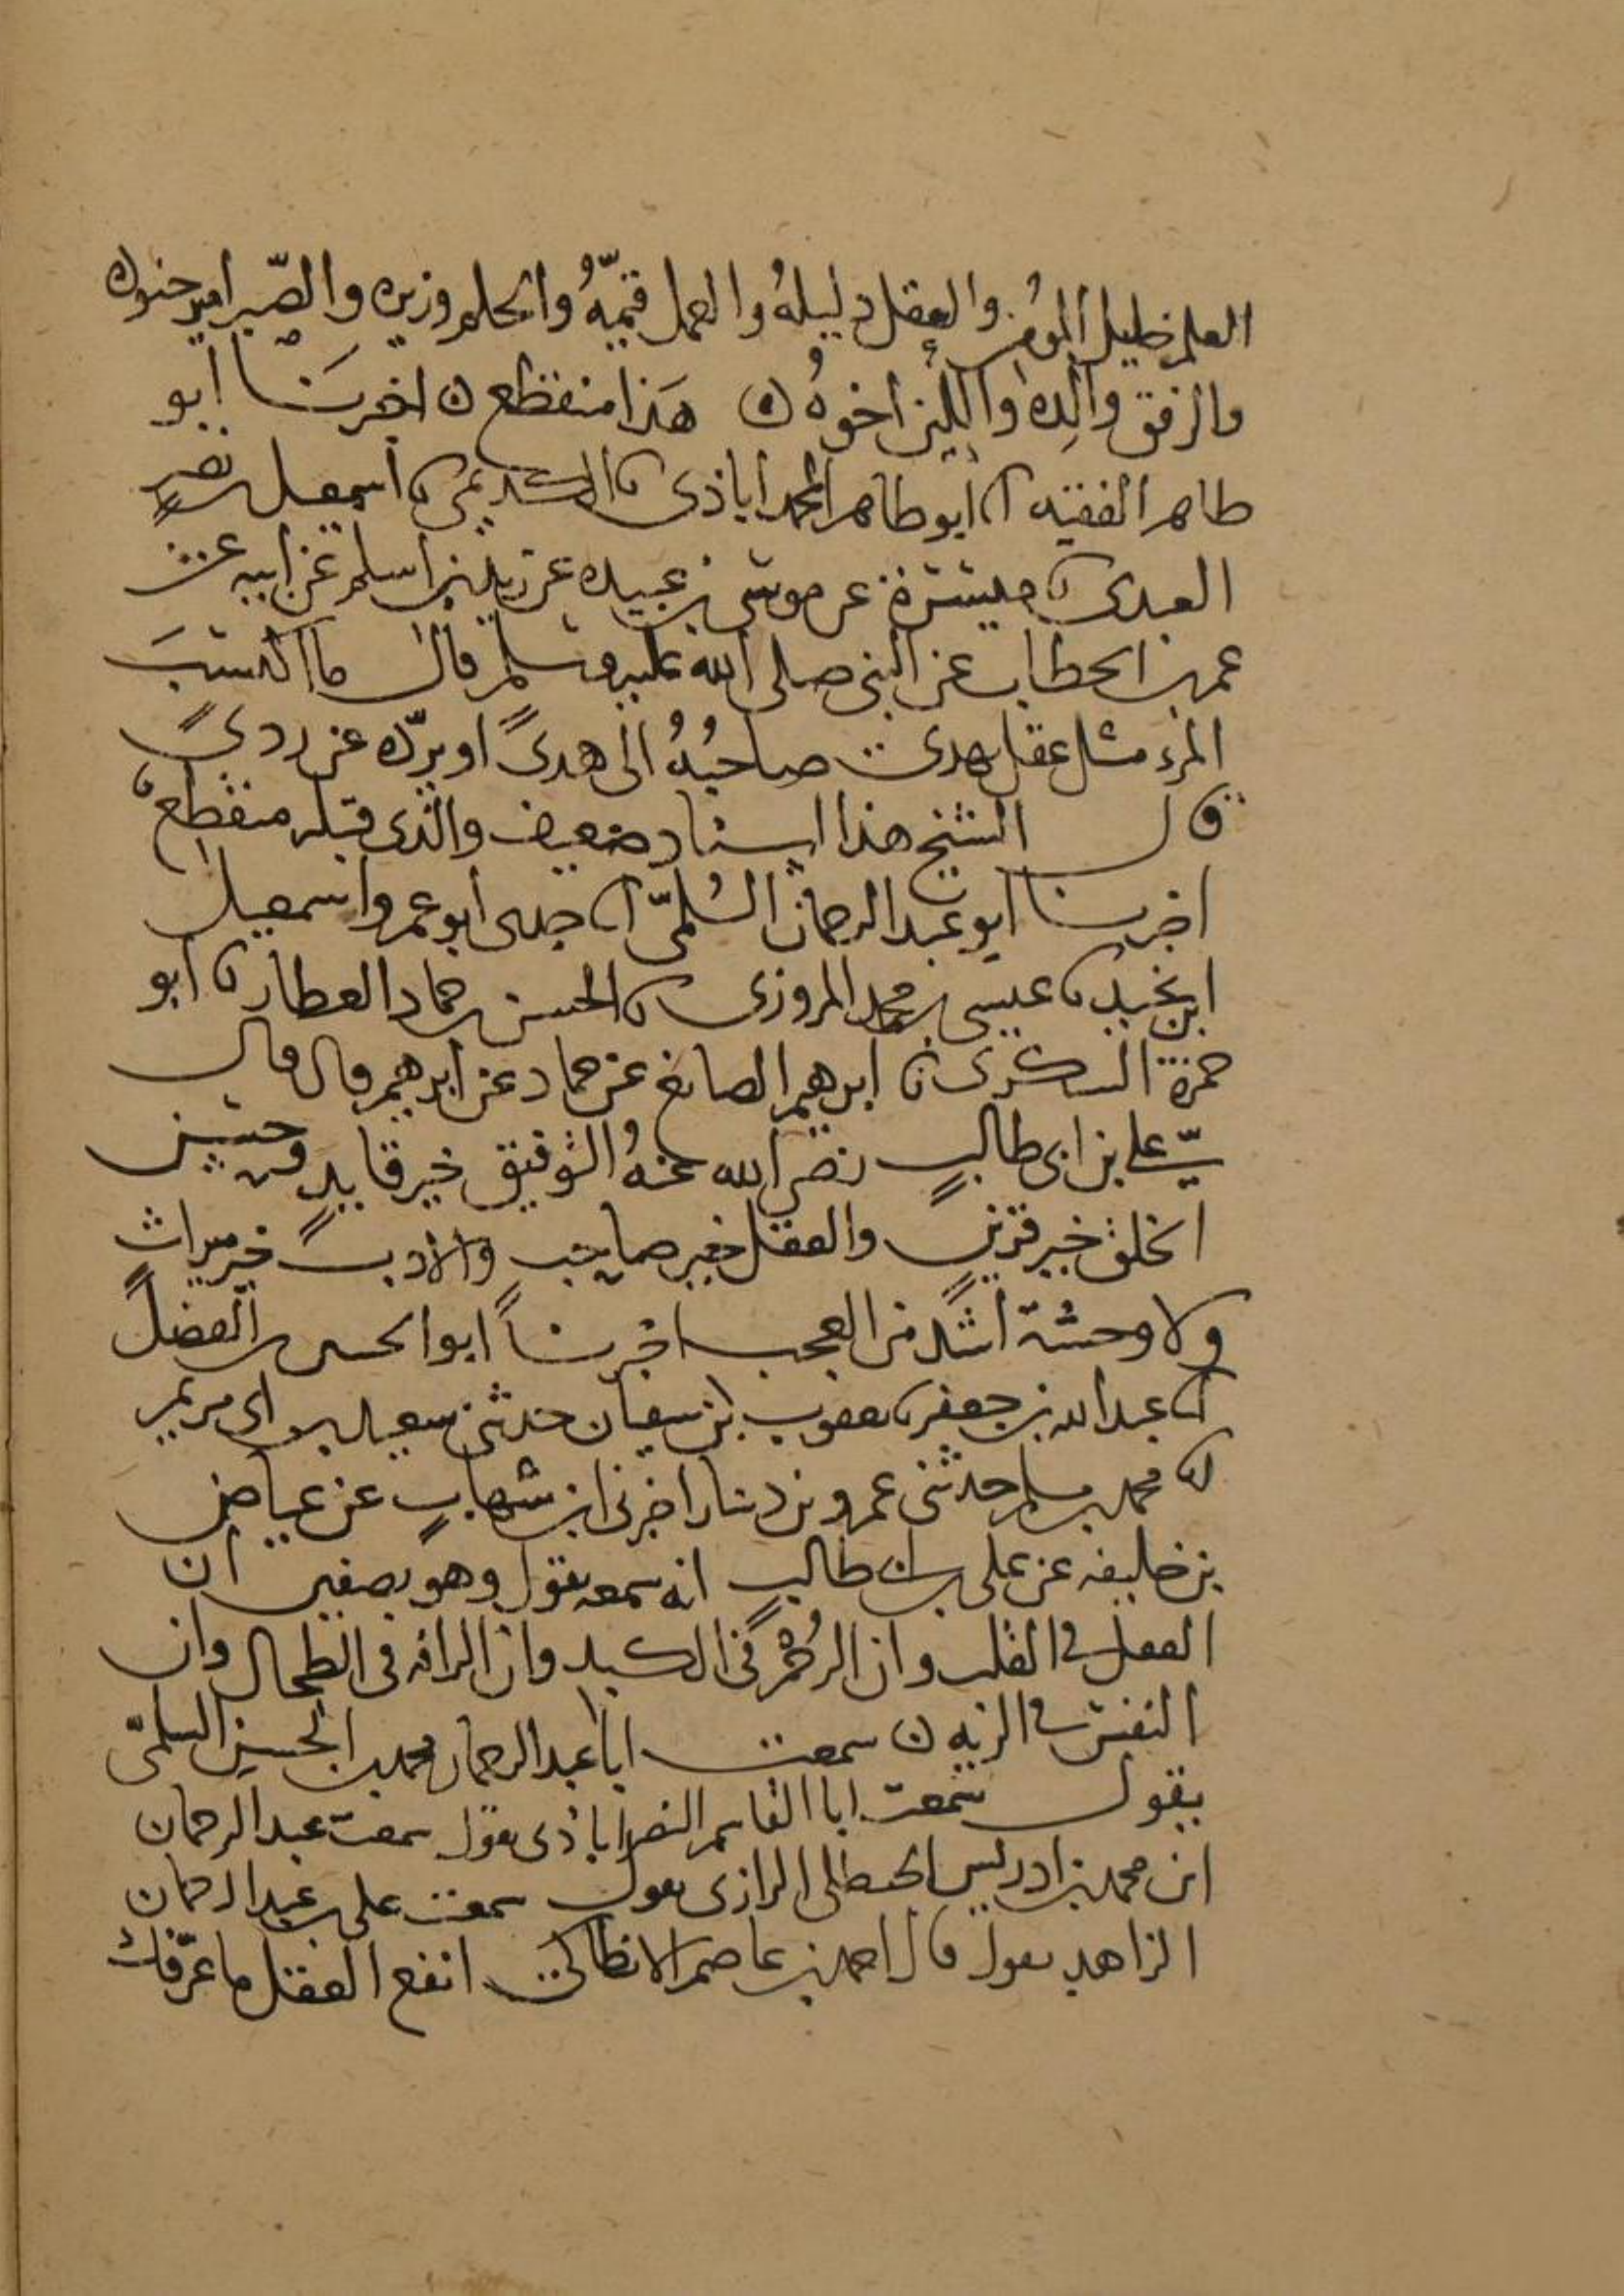 العلم خليل المؤمن والعقل دليلهُ والعمل قيّمهُ والحلم وزيره والصّبر امير جنوده
والرفق والِدهُ واللين اخوهُ ه هَذا منقطع ه اخبرَنا ابو
طاهر الفقيه انا ابو طاهر المحمد اباذي نا الكديمي نا اسمعيل بن نصر
العبدي نا ميسرة عن موسى بن عبيده عن زيد بن اسلم عن ابيه عن
عمر بن الخطاب عن النبي صلى الله عليه وسلم قال ما اكتسَبَ
المرء مثل عقل يهدي صاحبُهُ الى هدىً او يردّه عن ردىً
قال الشيخ هذا اسناد ضعيف والذي قبله منقطع ه
اخبرنا ابو عبد الرحمان السُلميّ انا جدي ابو عمرو اسمعيل
ابن نجيد نا عيسى بن محمد المروزي نا الحسن بن حماد العطار نا ابو
حمزة السكري نا ابرهيم الصايغ عن حماد عن ابرهيم قال قال
علي بن ابي طالبٍ رضي الله عنهُ التوفيق خير قايدٍ وحسن
الخلق خير قرينٍ والعقل خير صاحب والادب خير ميراث
ولا وحشة اشد من العجب اخبرنا ابو الحسين بن الفضل
انا عبد الله بن جعفر نا يعقوب بن سفيان حدثني سعيد بن ابي مريم
نا محمد بن مسلم حدثني عمرو بن دينار اخبرني ابن شهابٍ عن عياض
بن خليفه عن علي بن ابي طالبٍ انه سمعه يقول وهو بصفين ان
العقل في القلب وان الرُحْمَ في الكبد وان الرافه في الطحال وان
النفس في الريه ه سمعت ابا عبد الرحمان محمد بن الحسين السلميّ
يقول سمعت ابا القاسم النصراباذي يقول سمعت عبد الرحمان
ابن محمد بن ادريس الحنظلي الرازي يقول سمعت علي بن عبد الرحمان
الزاهد يقول قال احمد بن عاصم الانطاكي انفع العقل ما عرّفك